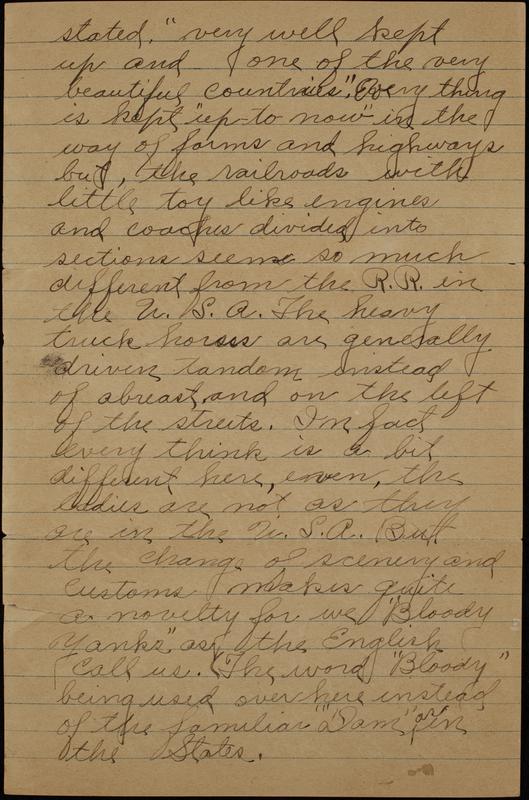 stated," very well kept
up and one of the very
beautiful countries". Every thing
is kept "up-to now" in the
way of farms and highways
but, the railroads with
little toy like engines
and coaches divided into
sections seems so much
different from the R.R. in
the U. S. A. The heavy
truck horses are generally
driven tandom instead
of abreast, and on the left
of the streets. In fact
every think is a bit
different here, even, the
ladies are not as they
are in the U. S. A. But
the change of scenery and
customs makes quite
a novelty for we "Bloody
Yanks", as the English
call us. (The word "Bloody"
being used over here instead
of the familiar "Dam" as in
the States.